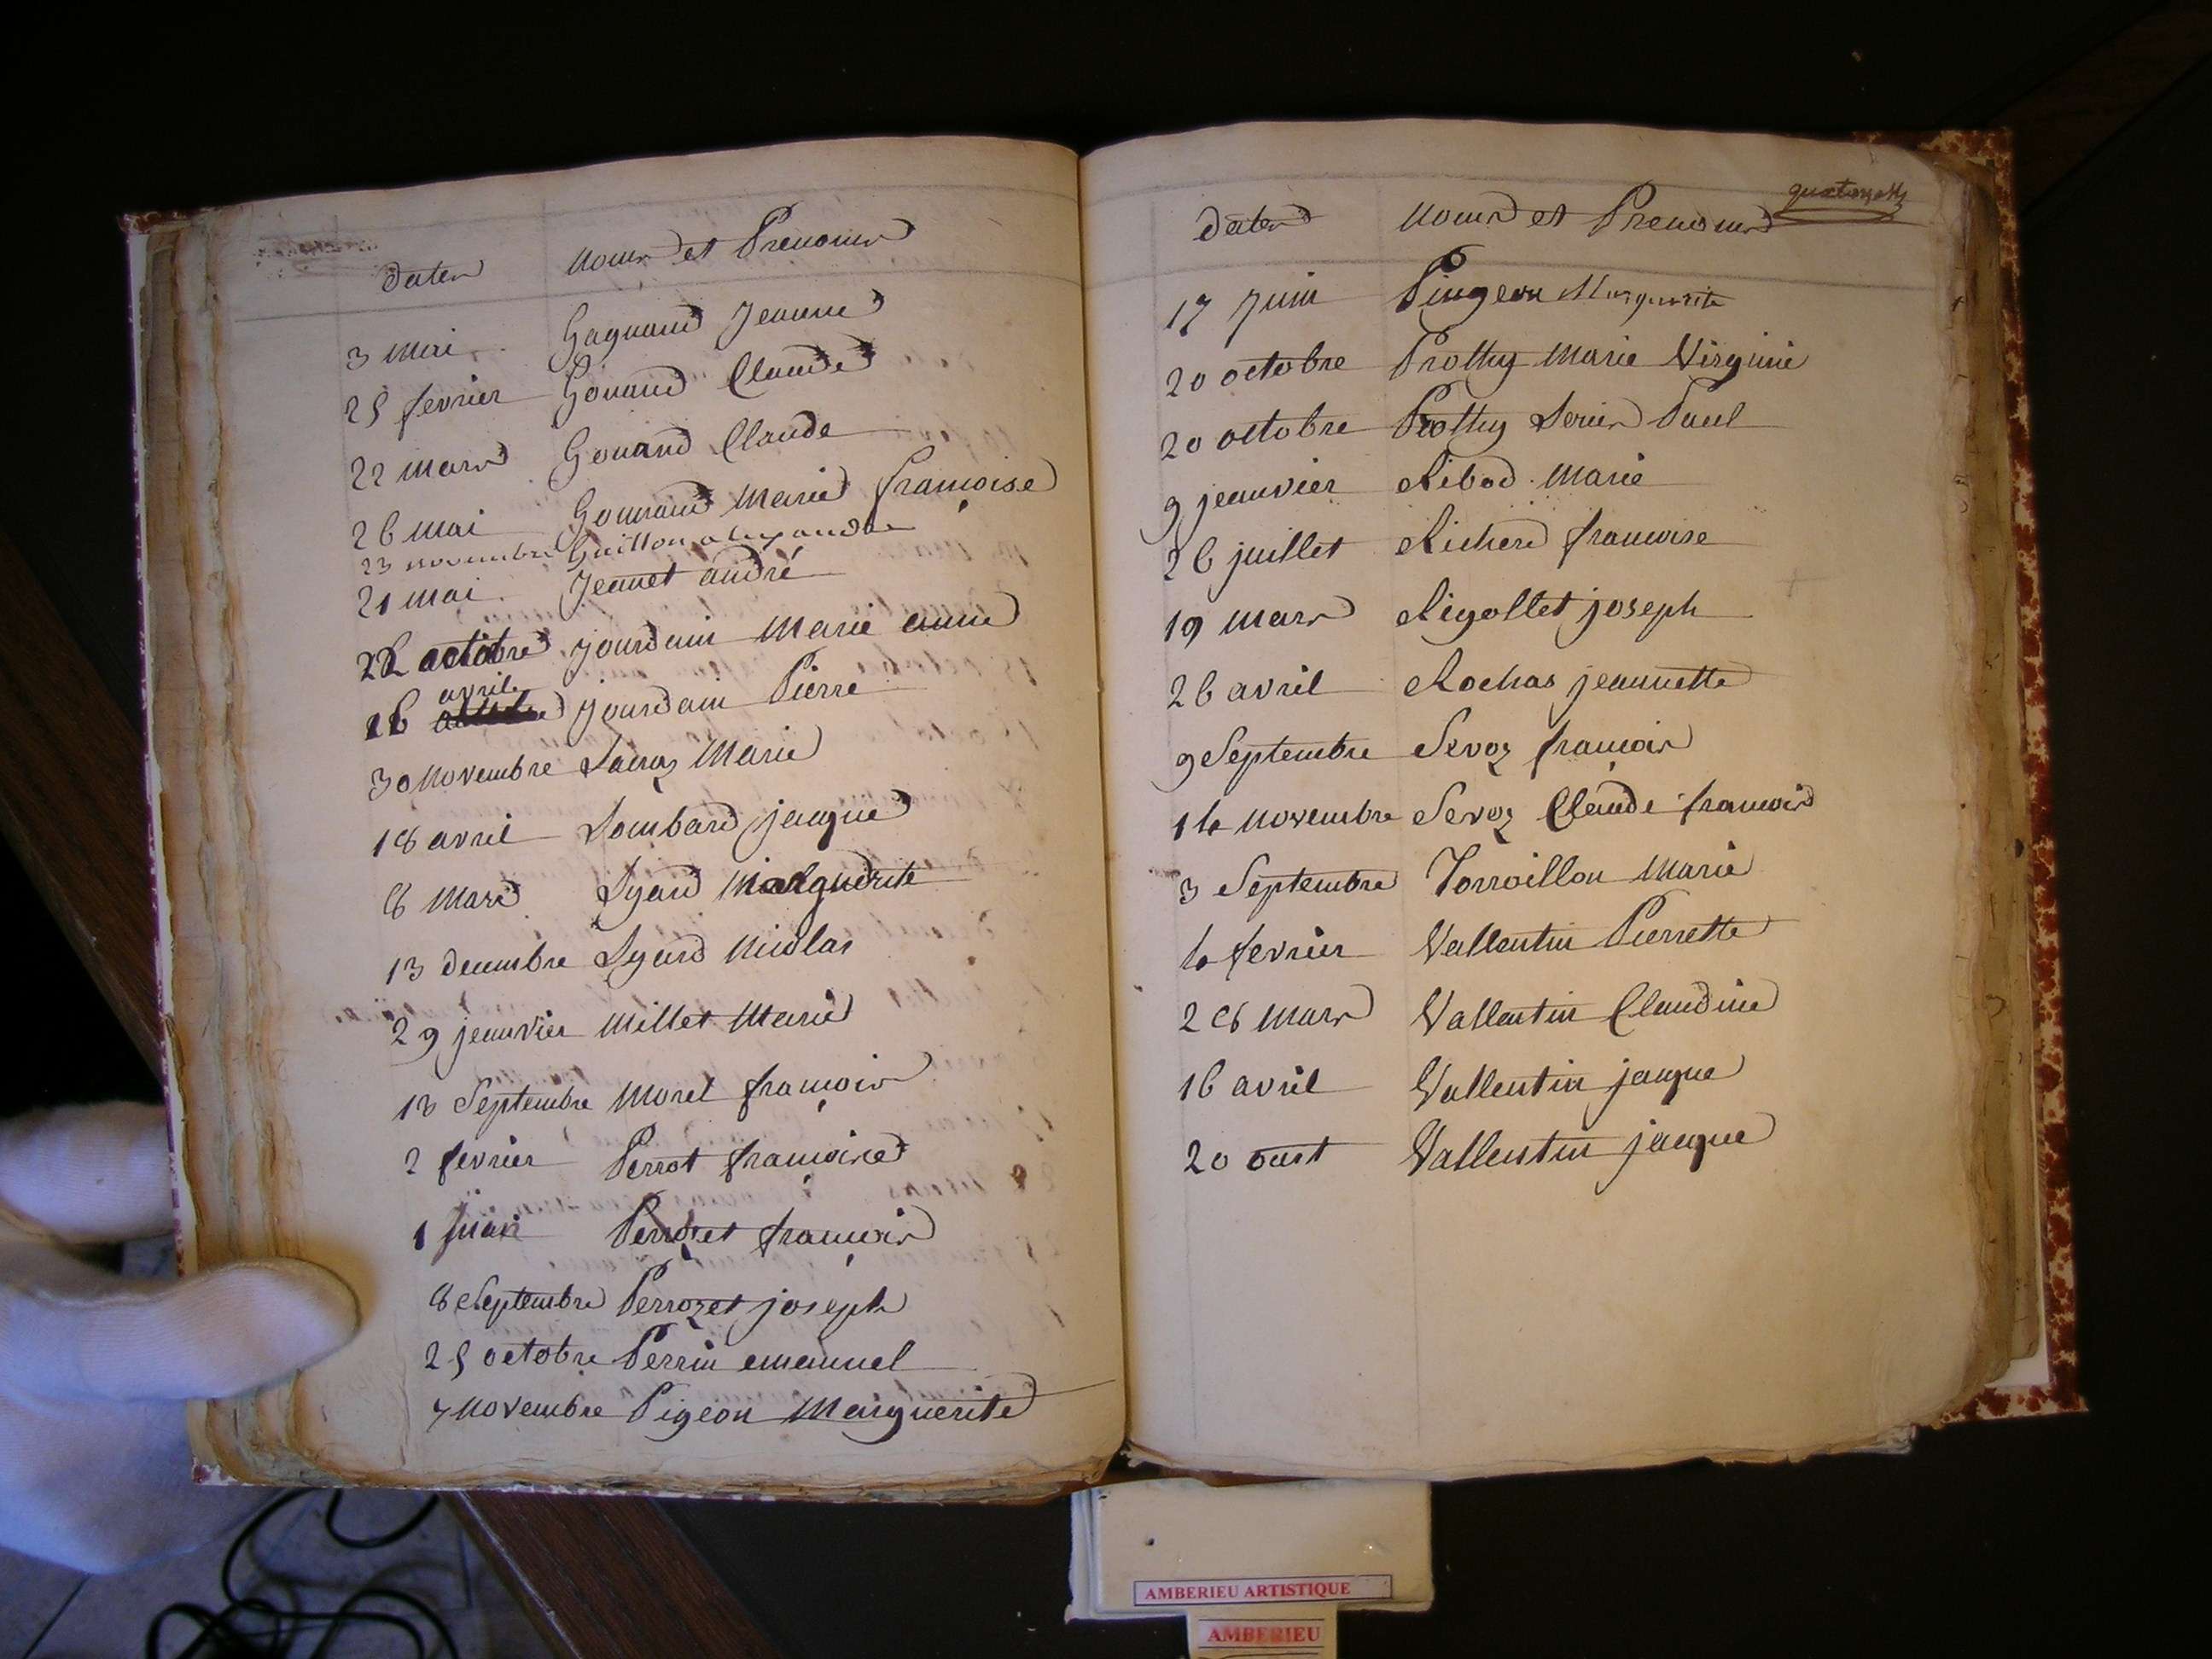 dates noms et Prenoms
3 mai Gagnaud Jeanne
25 fevrier Gonand Claude
22 mars Gonand Claude
26 mai Gonrand Marie françoise
23 novembre Guillon alexandre
21 mai Jeanet andré
22 octobre jourdain Marie anne
16 avril jourdain Pierre
30 Novembre Lacroz Marie
18 avril Lombard jacque
8 Mars Lyard Marguerite
13 decembre Lyard Nicolas
29 jeanvier Millet Marie
13 Septembre Morel françois
2 fevrier Perrot françoise
1 Perrozet françois
8 Septembre Perrozet joseph
25 octobre Perrin emanuel
7 Novembre Pigeon Marguerite
dates noms et Prenoms
17 Juin Pingeon Marguerite
20 octobre Prothy Marie Virginie
20 octobre Prothy Paul
9 jeanvier Ribod Marie
26 juillet Richerd francoise
19 mars Rigollet joseph
26 avril Rochas jeannette
9 Septembre Sevoz françois
14 novembre Sevoz Claude francois
3 Septembre Torroillon Marie
4 fevrier Vallentin Pierrette
28 mars Vallentin Claudine
16 avril Vallentin jacque
20 oust Vallentin jacque
AMBERIEU ARTISTIQUE
AMBERIEU